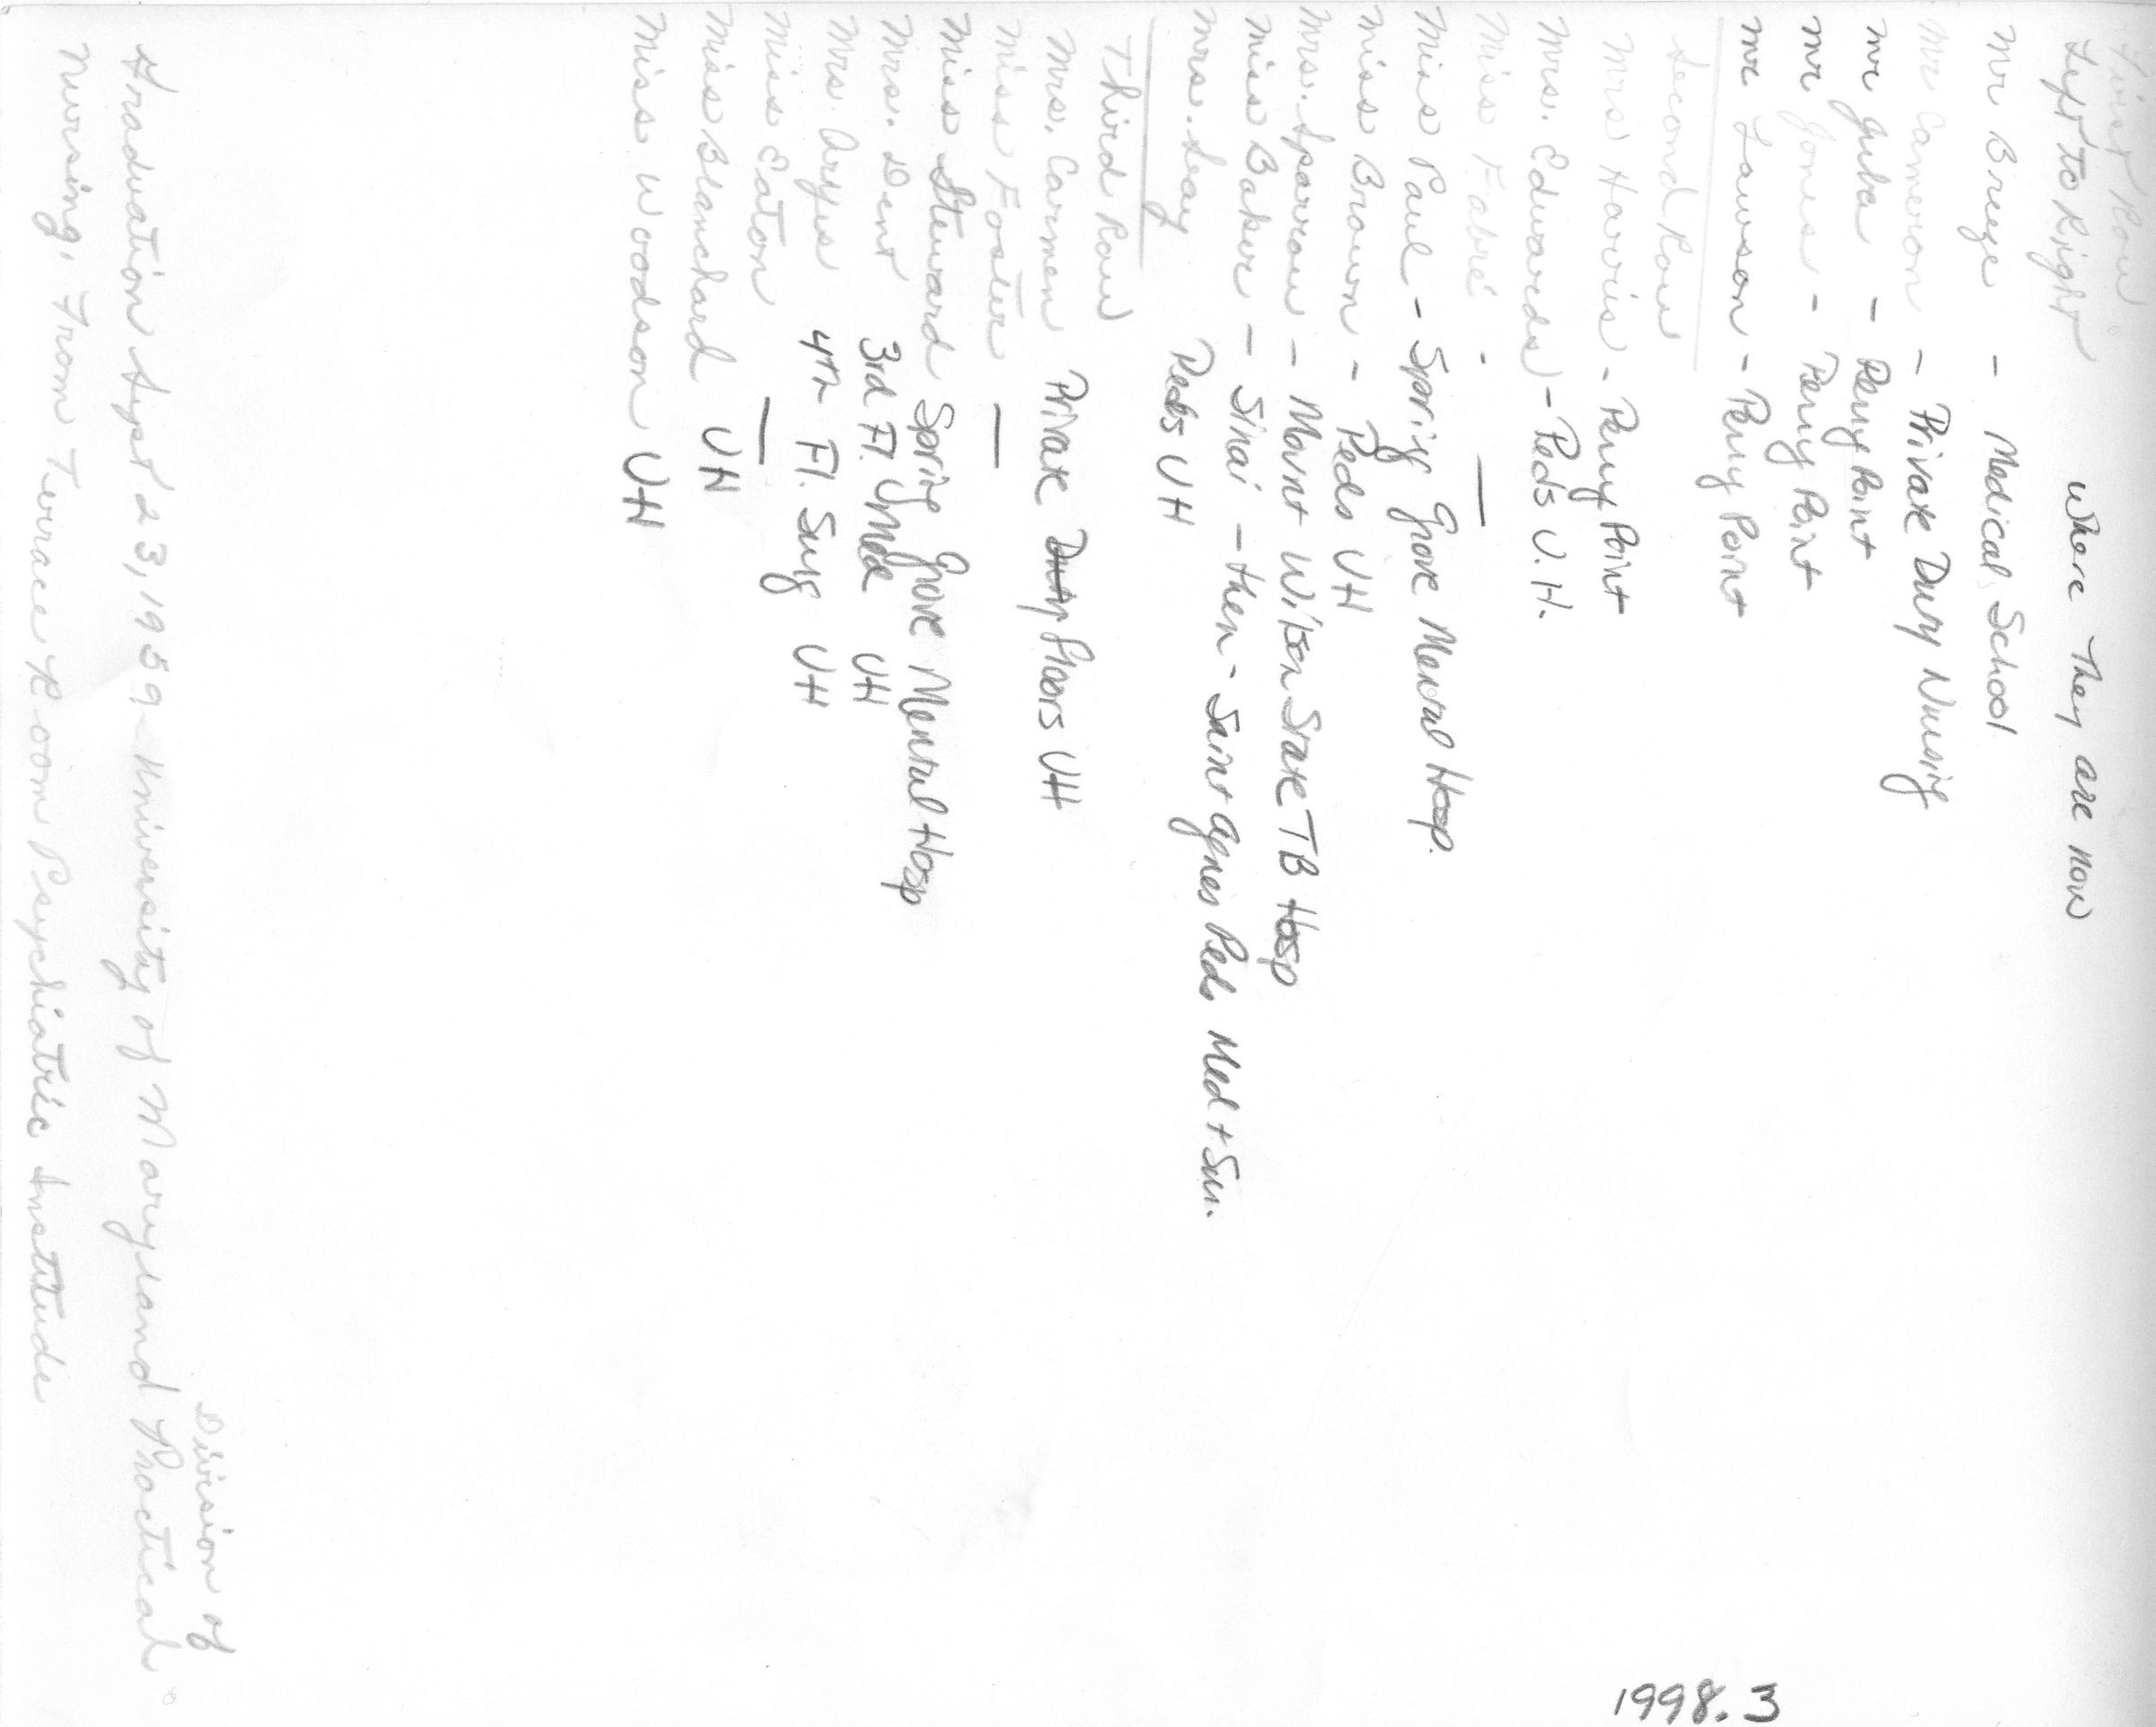 First Row
Left to Right Where They are now
Mr Breeze - Medical School
Mr Cameron - Private Duty Nursing
Mr Juba - Perry Point
Mr Jones - Perry Point
Mr Lawson - Perry Point
Second Row
Mrs Harris - Perry Point
Mrs. Edwards - Peds U.H.
Miss Fabré - —
Miss Paul - Spring Grove Mental Hosp.
Miss Brown - Peds UH
Mrs. Sparrow - Mount Wilson State TB Hosp
Miss Baker - Sinai - then - Saint Agnes Peds Med + Sur.
Mrs. Seay Peds UH
Third Row
Mrs. Carmen Private Duty floors UH
Miss Foster —
Miss Steward Spring Grove Mental Hosp
Mrs. Dent 3rd Fl. UH
Mrs. Aryes 4th Fl. Surg UH
Miss Eaton —
Miss Blanchard UH
Miss Woodson UH
Division of
Graduation Sept 23, 1959 University of Maryland Practical
Nursing, From Terrace Room Psychiatric Institude
1998.3